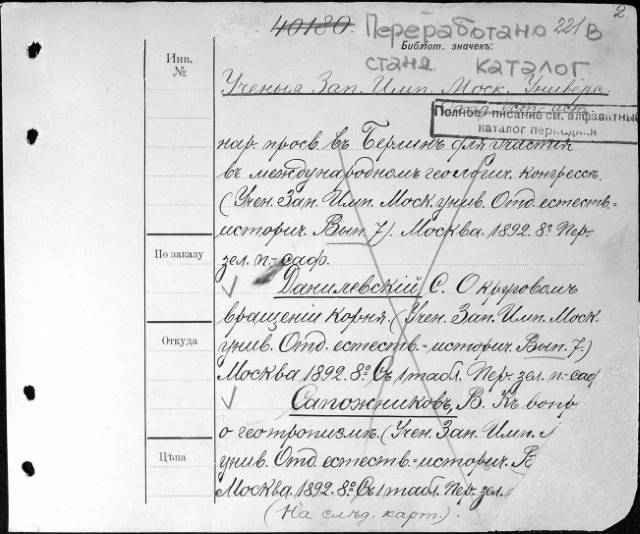 2.
40180. Переработано 221 В
Библиот. значекъ:
стане каталог
Инв.
№
Ученыя Зап. Имп. Моск. Универс.
Отд. ест.-ист.
Полное писание см. алфавитный
каталог периодики
нар. просв. въ Берлинъ для участия
въ международномъ геологич. конгрессѣ.
(Учен. Зап. Имп. Моск. унив. Отд. естеств.=
историч. Вып. 7). Москва. 1892. 8º. Пер.
зел. п.-саф.
По заказу
√ Данилевскій, С. О круговомъ
вращеніи корня. (Учен. Зап. Имп. Моск.
Откуда
унив. Отд. естеств.=историч. Вып. 7.)
Москва 1892. 8º. Съ 1 табл. Пер. зел. п-саф
√ Сапожниковъ, В. Къ вопр
о геотропизмѣ. (Учен. Зап. Имп.
Цѣна
унив. Отд. естеств.=историч. В
Москва. 1892. 8º. Съ 1 табл. Пер. зел.
(На слѣд. карт.).